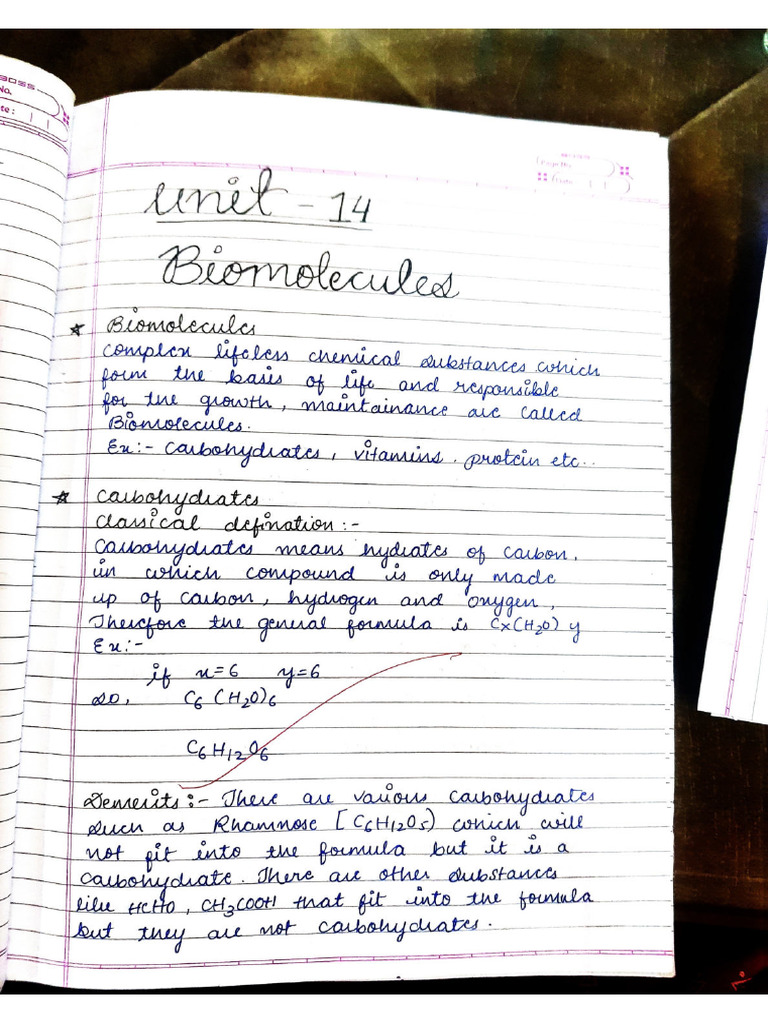 unit - 14
Biomolecules
★ Biomolecules
complex lifeless chemical substances which
form the basis of life and responsible
for the growth, maintainance are called
Biomolecules.
Ex:- Carbohydrates, vitamins. protein etc..
★ Carbohydrates
Classical defination:-
Carbohydrates means hydrates of carbon.
in which compound is only made
up of carbon, hydrogen and oxygen,
Therefore the general formula is Cx(H2O)y
Ex:-
if x=6 y=6
so, C6(H2O)6
C6H12O6
Demerits:- There are various carbohydrates
such as Rhamnose [C6H12O5) which will
not fit into the formula but it is a
carbohydrate. There are other substances
like HCHO, CH3COOH that fit into the formula
but they are not carbohydrates.